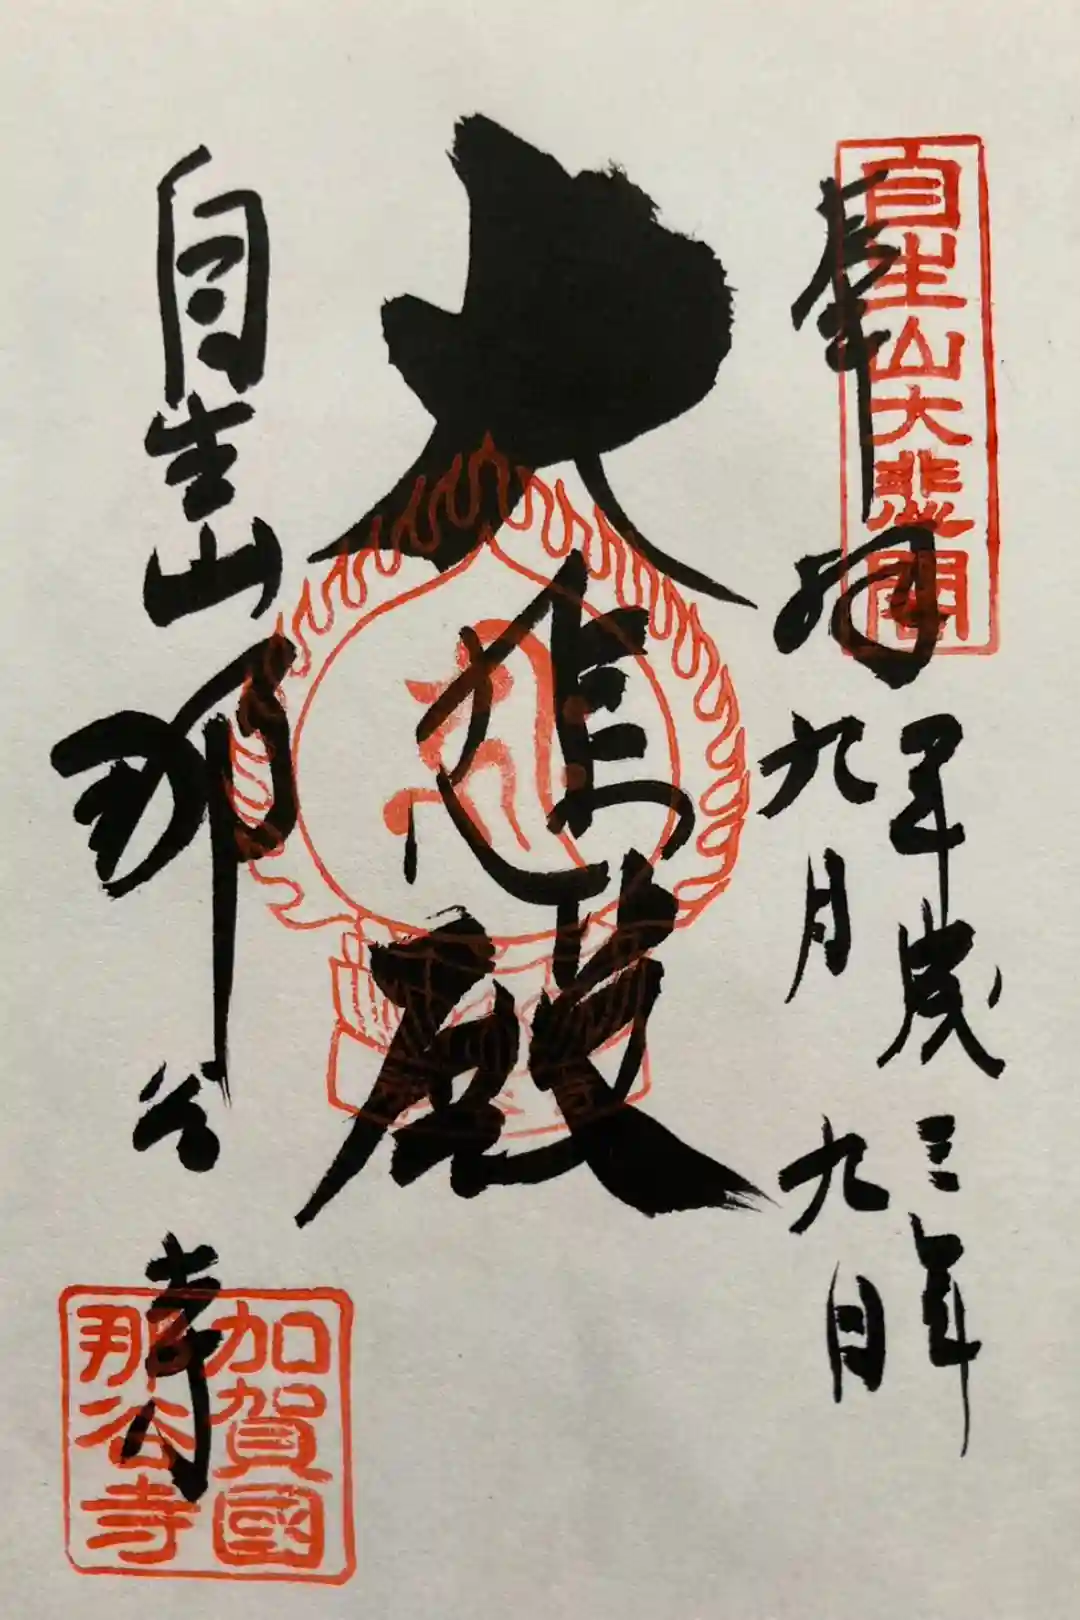 奉拝
自生山大悲閣
三年
九月九日
大悲殿
自生山那谷寺
加賀國
那谷寺